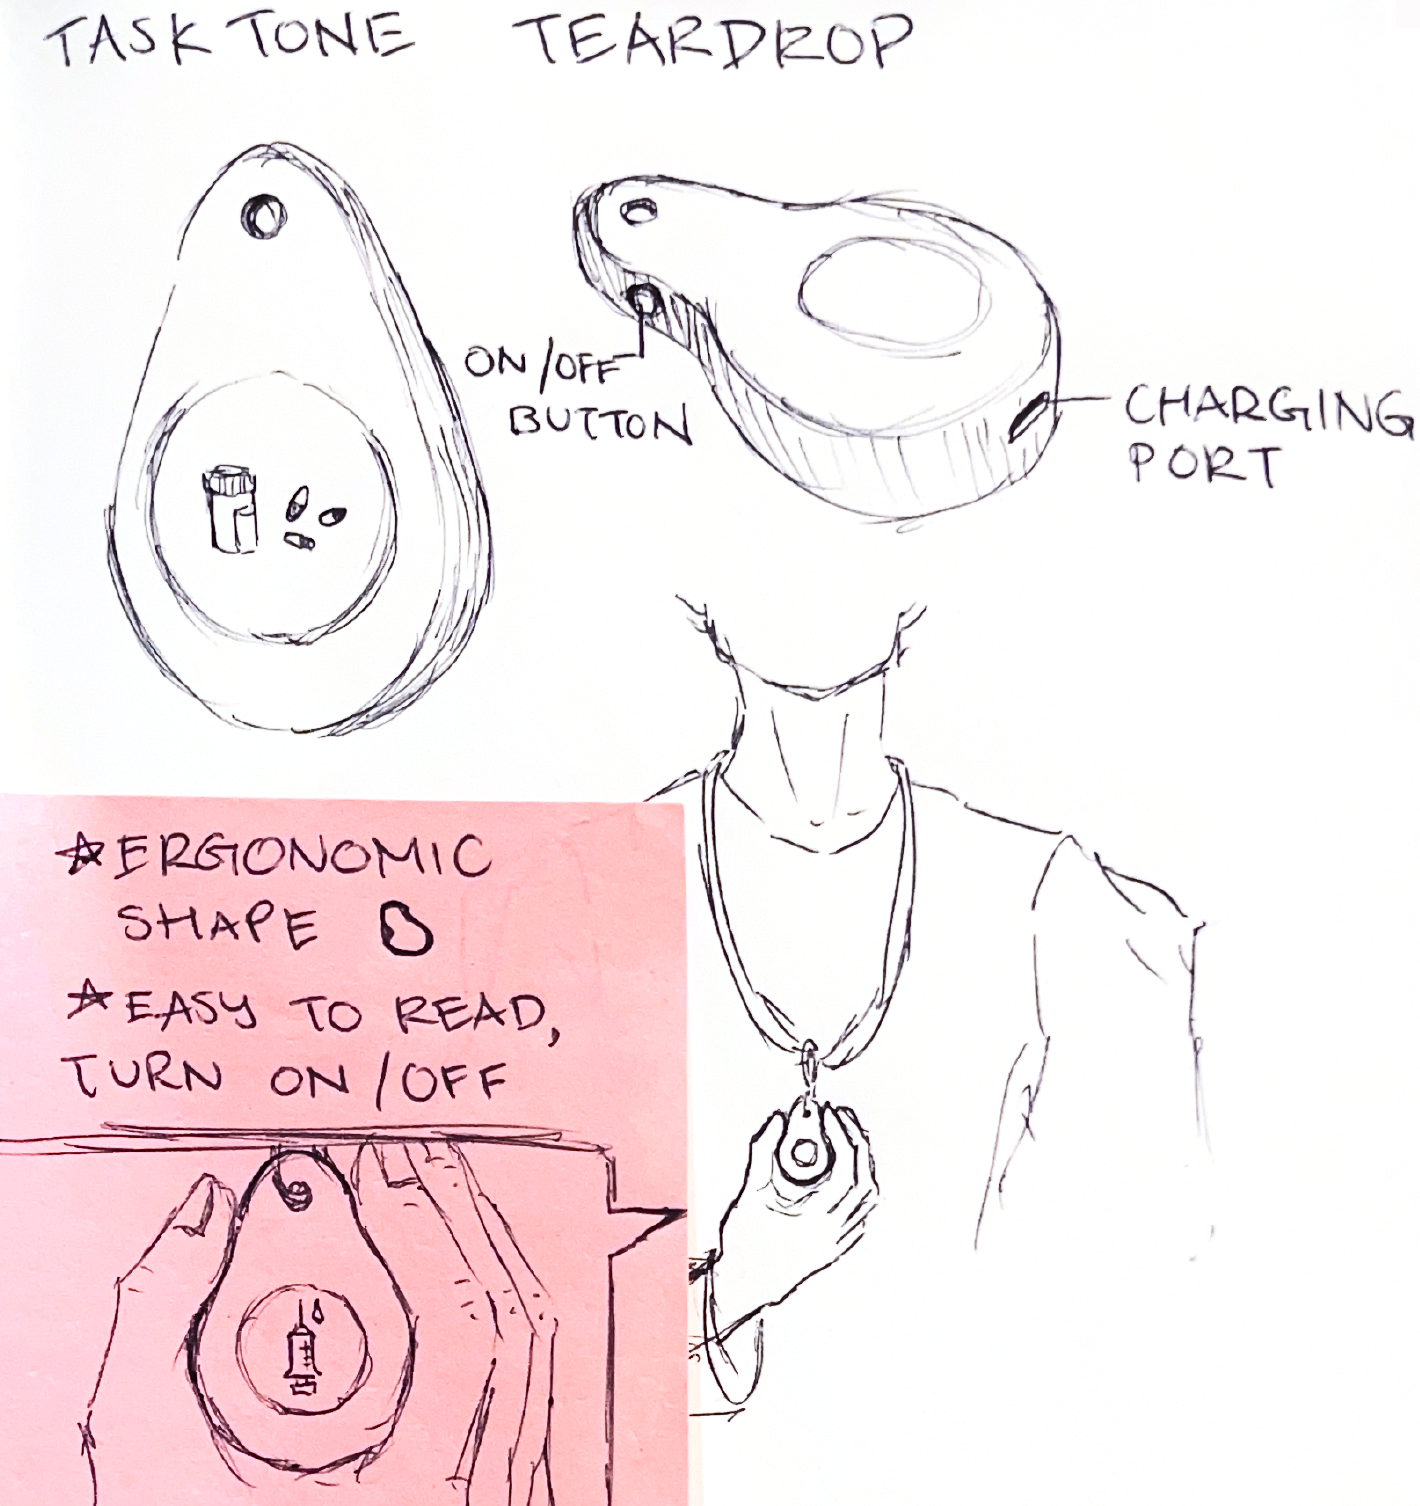 TASK TONE TEARDROP
ON/OFF
BUTTON
CHARGING
PORT
★ERGONOMIC
SHAPE
★EASY TO READ,
TURN ON/OFF